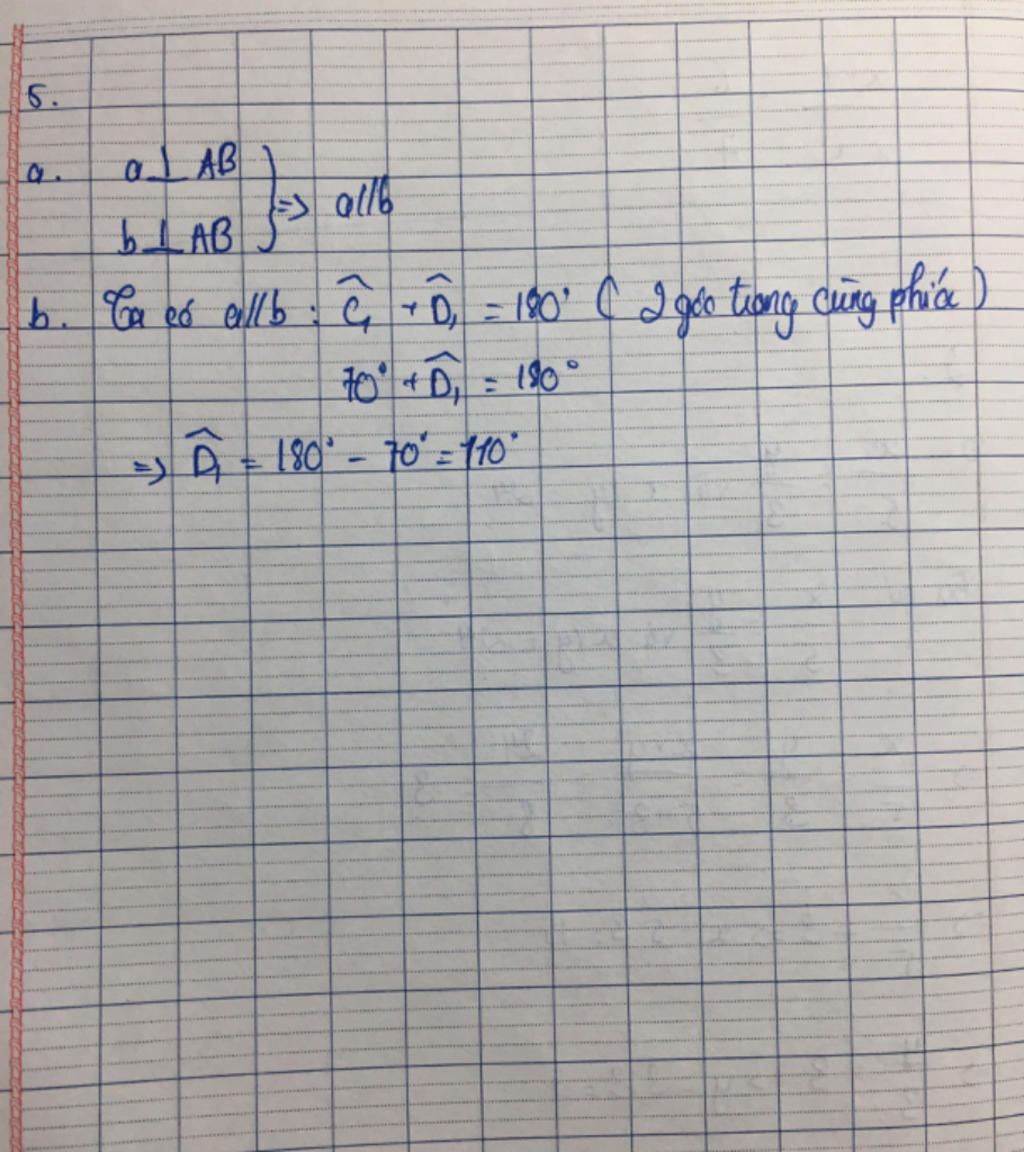 5.
a. a ⊥ AB
b ⊥ AB } => a//b
b. Ta có a//b : Ĉ₁ + D̂₁ = 180° ( 2 góc trong cùng phía )
70° + D̂₁ = 180°
=> D̂₁ = 180° - 70° = 110°